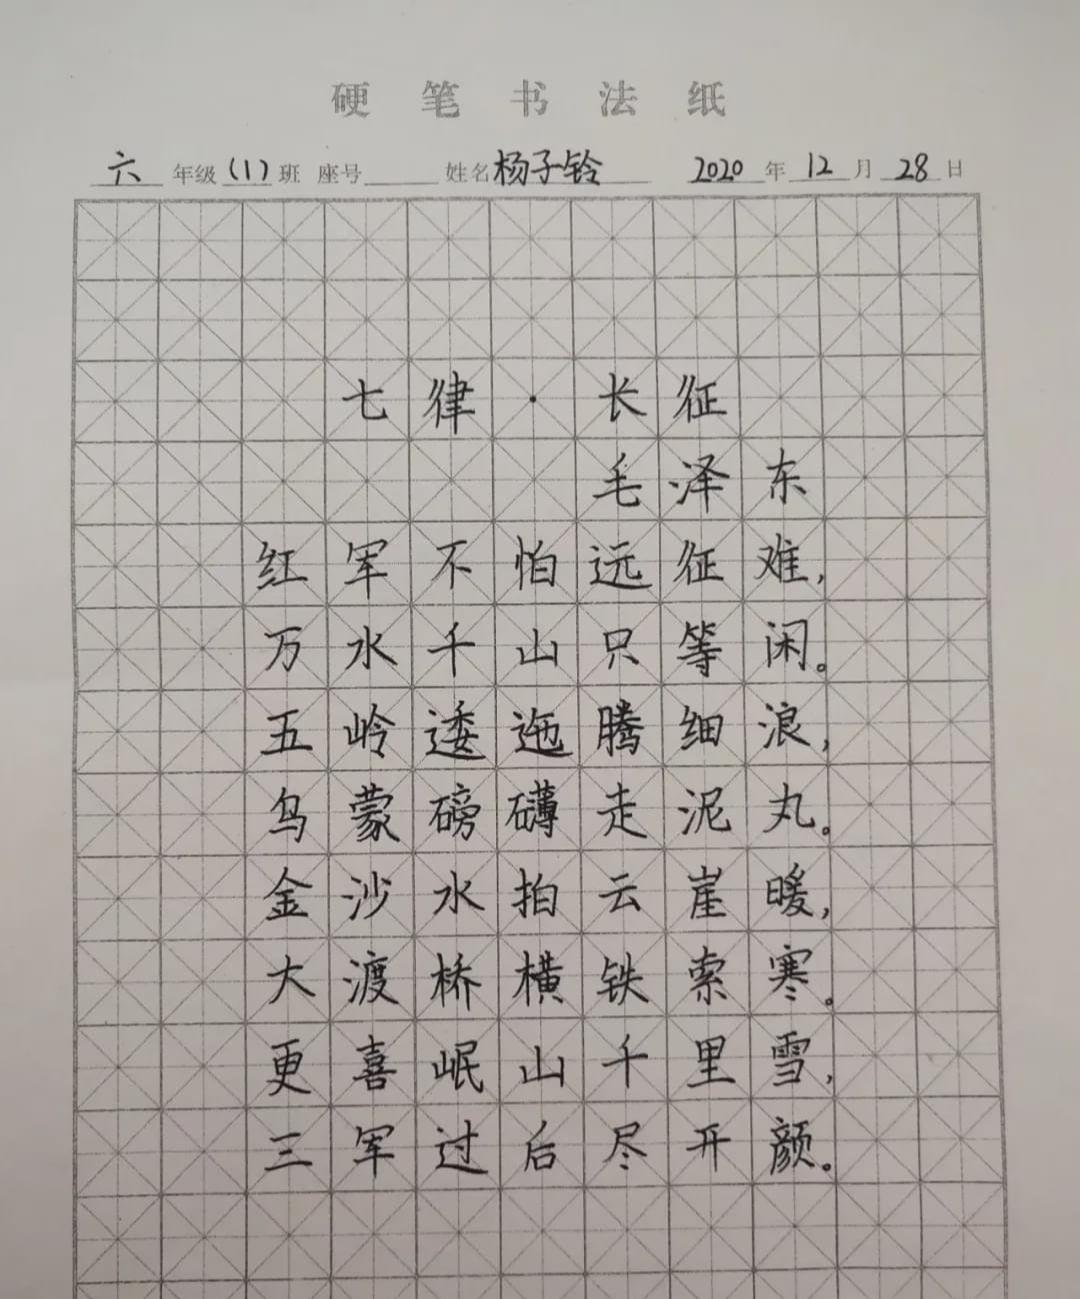 硬笔书法纸
六年级(1)班 座号 姓名杨子铃 2020年12月28日
七律·长征
毛泽东
红军不怕远征难,
万水千山只等闲。
五岭逶迤腾细浪,
乌蒙磅礴走泥丸。
金沙水拍云崖暖,
大渡桥横铁索寒。
更喜岷山千里雪,
三军过后尽开颜。